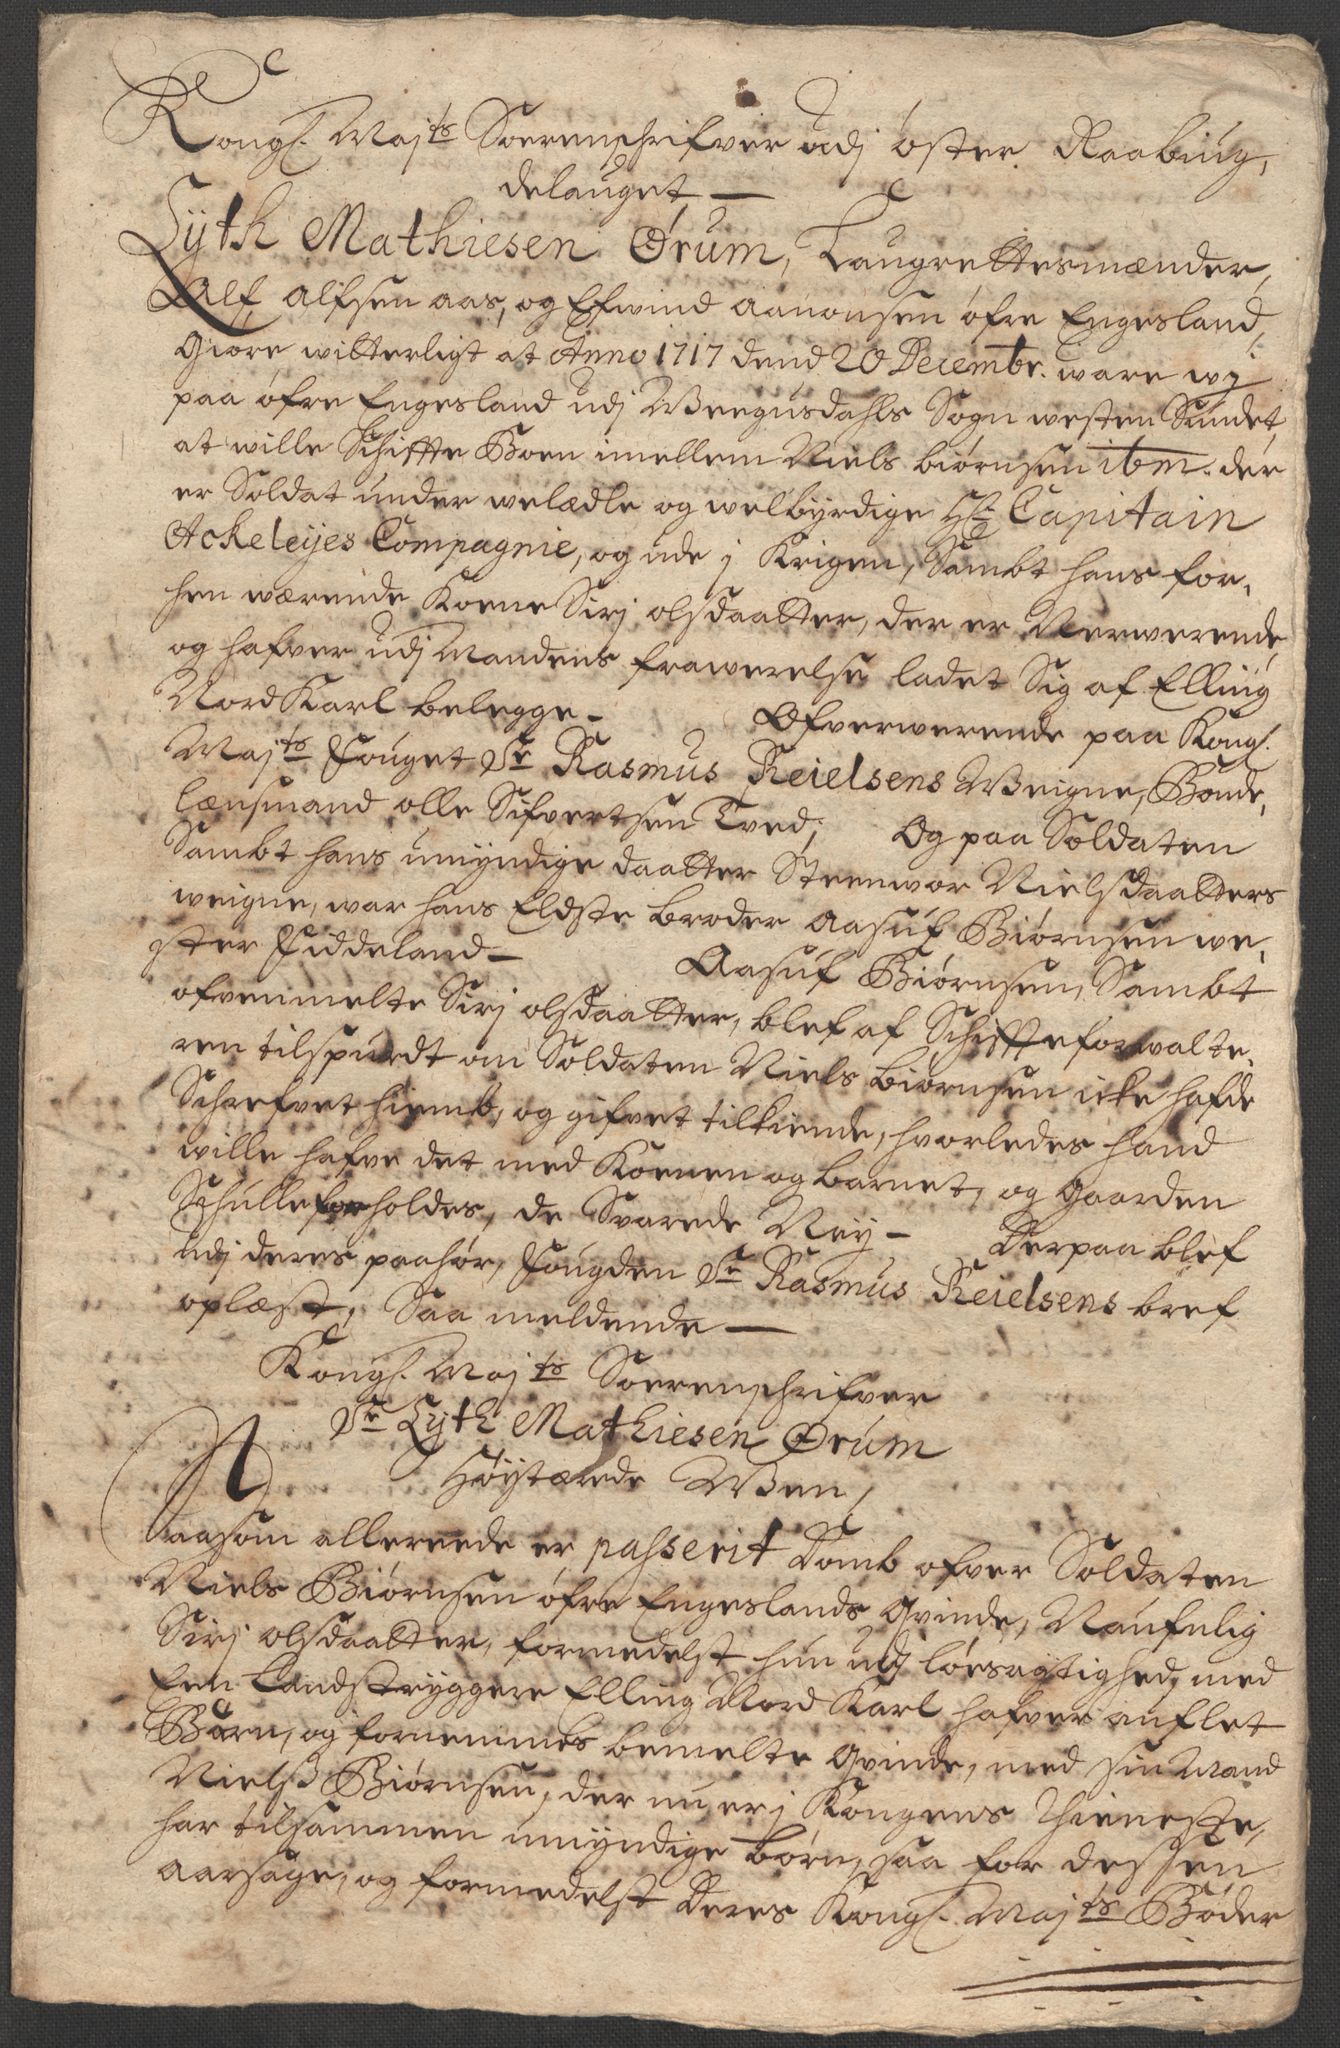 Kongl. Majts Sorenschrifver udj öster Raabiug,
delauget
Lyth Mathiesen Ørum, Laugrettesmænder,
Alf Alfsen aas, og Efwind Aanonsen öfre Engesland,
Giöre witterligt at Anno 1717 dend 20 Decembr. ware wj
paa öfre Engesland udj Weegusdahls Sogn westen Sundet,
at wille Schiffte Boen imellem Niels biörnsen ibm. der
er Soldat under welædle og welbyrdige Hr Capitain
Ackeleyes Compagnie, og ude j Krigen, Sambt hans for,
hen wærende Koene Sirj olsdaatter, der er Nerwerende,
og hafver udj Mandens frawerelse ladet Sig af Elling
Nord Karl belegge. Ofverwerende paa Kongl.
Majts Fouget Sr Rasmus Keielsens Weigne, Bonde,
lænsmand olle Sifvertsen Tved, Og paa Soldaten
Sambt hans umyndige daatter Steenwor Nielsdaatters
weigne, war hans Eldste broder Aasuf Biörnsen we,
ster Fiddeland Aasuf Biörnsen, Sambt
ofvenmelte Sirj olsdaatter, blef af Schiffteforwalte,
ren tilspurdt om Soldaten Niels Biörnsen icke hafde
Schrefvet hiemb, og gifvet tilkiende, hvorledes hand
wille hafve det med Koenen og barnet, og gaarden
Schulle forholdes, de Svarede Ney Derpaa blef
udj deres paahör, Fougden Sr Rasmus Keielsens bref
oplæst, Saa meldende
Kongl. Majts Sorenschrifver
Sr Lyth Mathiesen Ørum
Höytærede Wen,
Saasom allereede er passerit Domb ofver Soldaten
Niels Biörnsen öfre Engeslands Qvinde, Naufnlig
Sirj olsdaatter, formedelst hun udj löesagtighed, med
Een Landstryggere Elling Nord Karl hafver auflet
Barn, og fornemmes bemelte Qvinde, med sin Mand
Nielß Biörnsen, der nu er j Kongens Thieneste,
har tilsammen umyndige börn, saa for dessen
aarsage, og formedelst Deres Kongl. Majts Böder